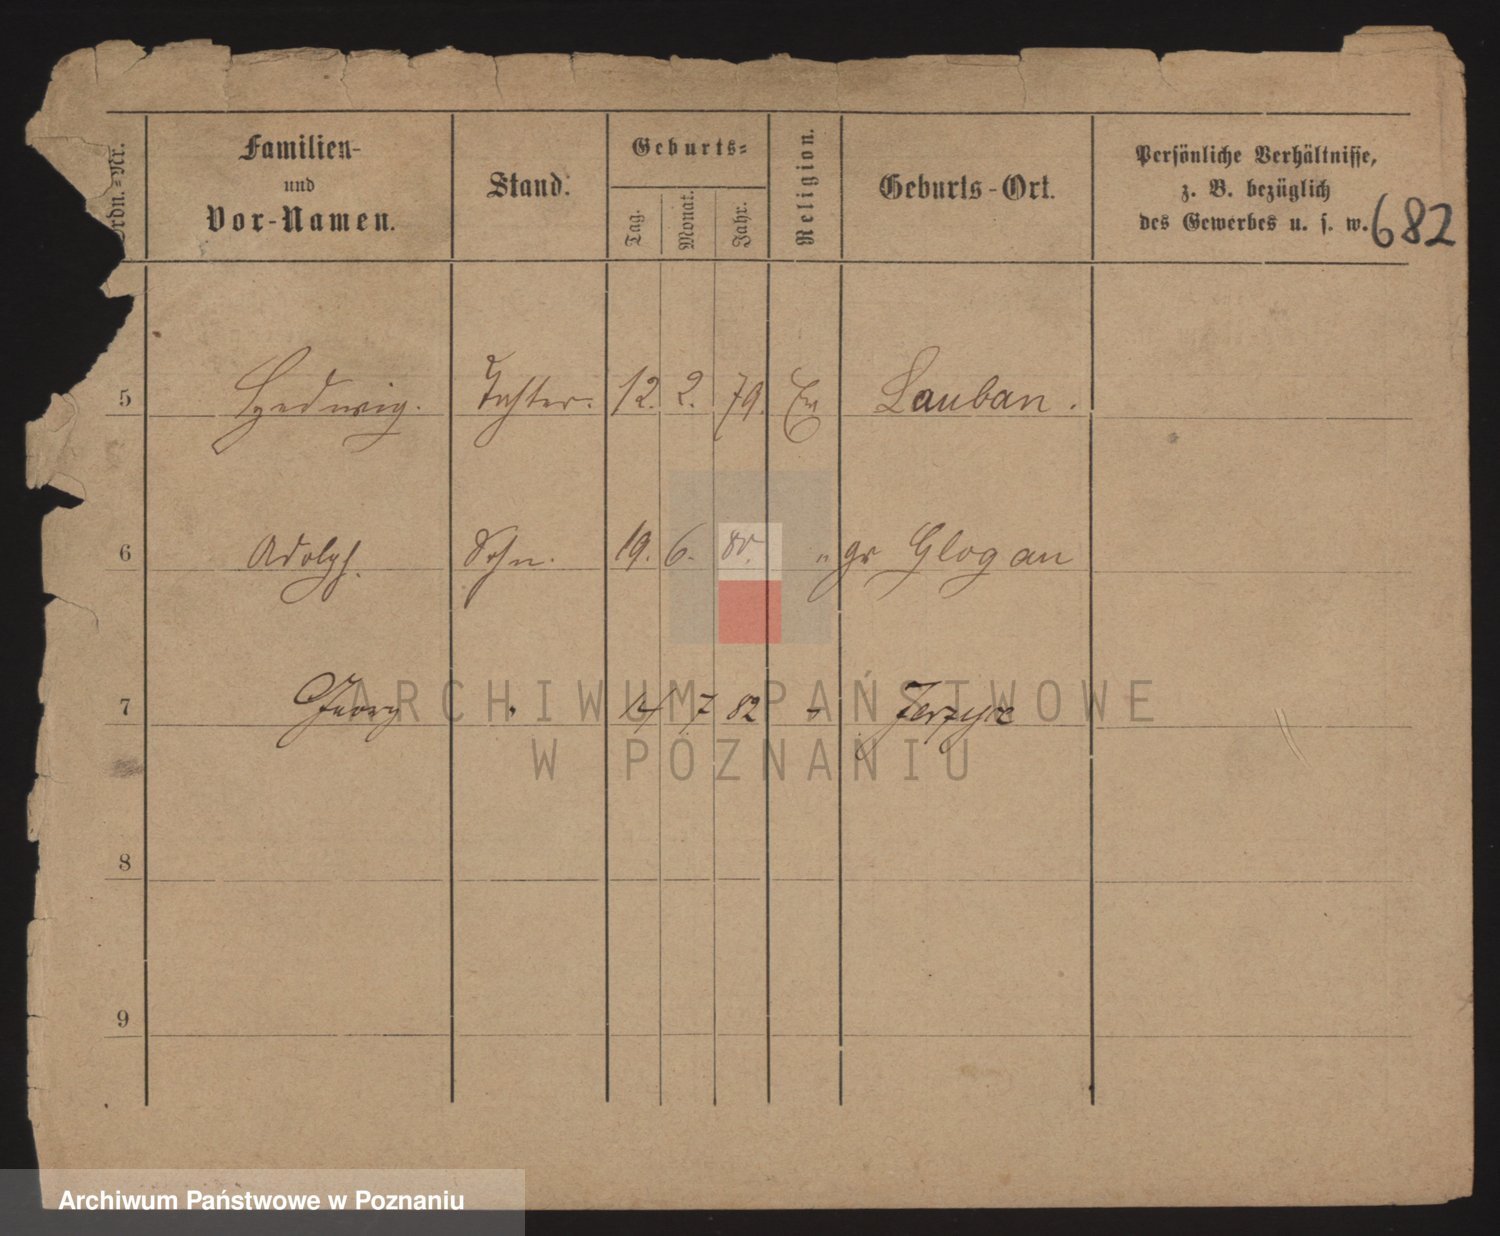 Ordn.-Nr. Familien- und Vor-Namen. Stand. Geburts- Tag. Monat. Jahr. Religion. Geburts-Ort. Persönliche Verhältnisse, z. B. bezüglich des Gewerbes u. s. w. 682
5 Hedwig. Tochter. 12. 2. 79. Ev Lauban.
6 Adolph. Sohn. 19. 6. 80. " gr Glogau
7 Georg " 7 82 Jerzyce
8
9
ARCHIWUM PAŃSTWOWE
W POZNANIU
Archiwum Państwowe w Poznaniu